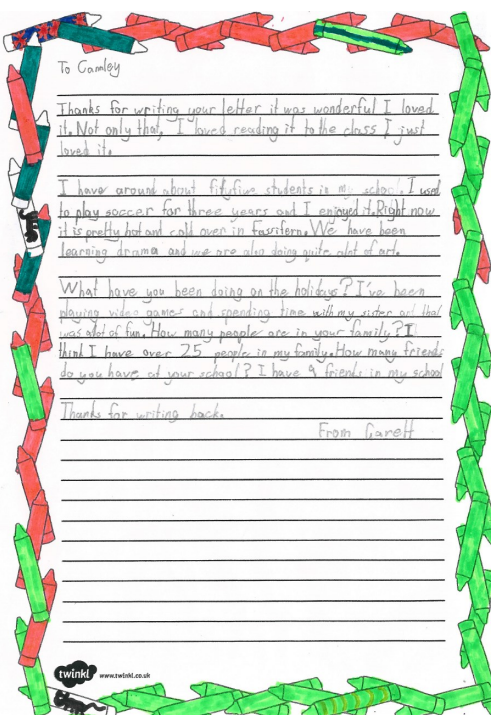 To Camley
Thanks for writing your letter it was wonderful I loved
it. Not only that, I loved reading it to the class I just
loved it.
I have around about fityfive students in my school. I used
to play soccer for three years and I enjoyed it. Right now
it is pretty hot and cold over in Fassifern. We have been
learning drama and we are also doing quite alot of art.
What have you been doing on the holidays? I've been
playing video games and spending time with my sister and that
was alot of fun. How many people are in your family? I
think I have over 25 people in my family. How many friends
do you have at your school? I have 9 friends in my school
Thanks for writing back.
From Garett
twinkl www.twinkl.co.uk